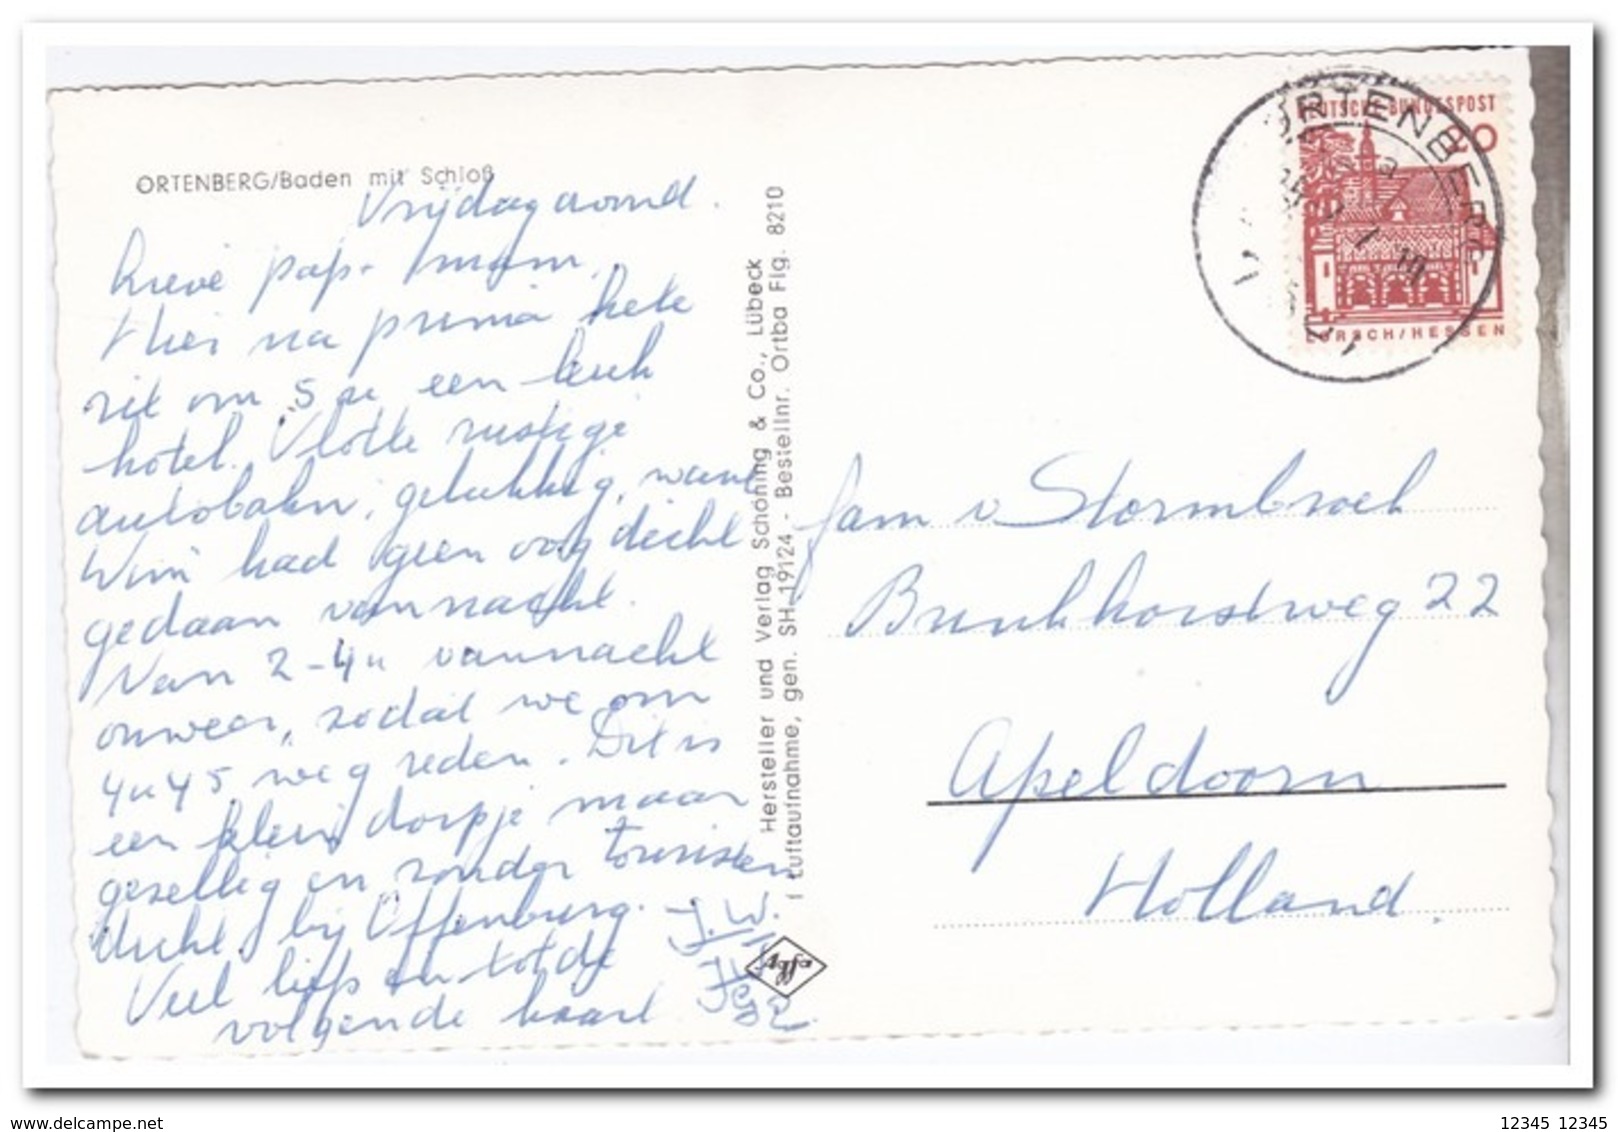 ORTENBERG/Baden mit Schloß
Vrijdagavond.
Lieve pap + mam,
Hier na prima hele
rit om 5 u een leuk
hotel. Vlotte rustige
autobahn, gelukkig, want
Wim had geen oog dicht
gedaan vannacht.
Van 2-4u vannacht
onweer, zodat we om
4u45 weg reden. Dit is
een klein dorpje maar
gezellig en zonder touristen
dicht bij Offenburg.
Veel liefs en tot de
volgende kaart
J.W.
Hersteller und Verlag Schöning & Co., Lübeck
Luftaufnahme, gen. SH 19124 - Bestellnr. Ortba Flg. 8210
DEUTSCHE BUNDESPOST
20
LORSCH/HESSEN
ORTENBERG
Fam v Stormbroek
Brunkhorstweg 22
Apeldoorn
Holland.
delcampe.net
12345 12345